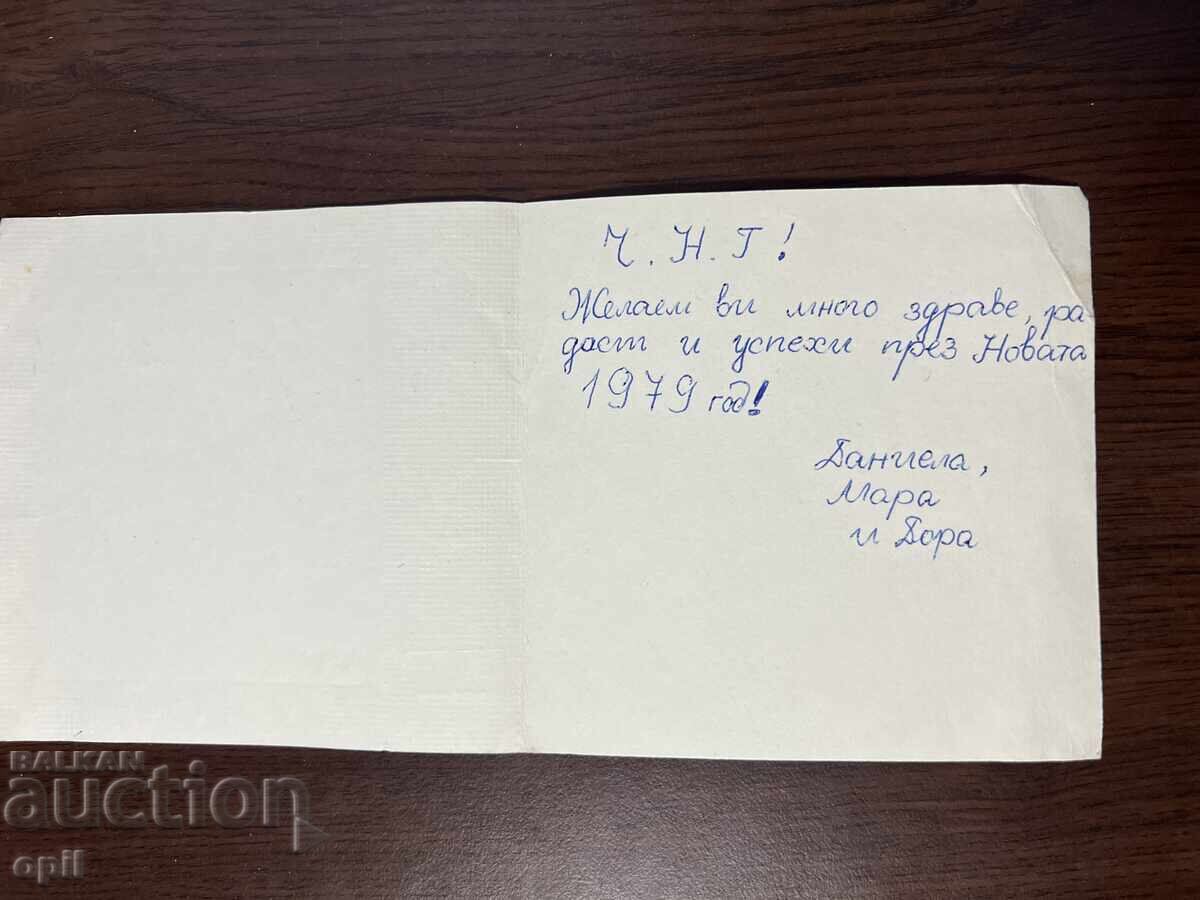 Ч. Н. Г!
Желаем ви много здраве, ра
дост и успехи през Новата
1979 год!
Даниела,
Мара
и Бора
BALKAN
auction
opil